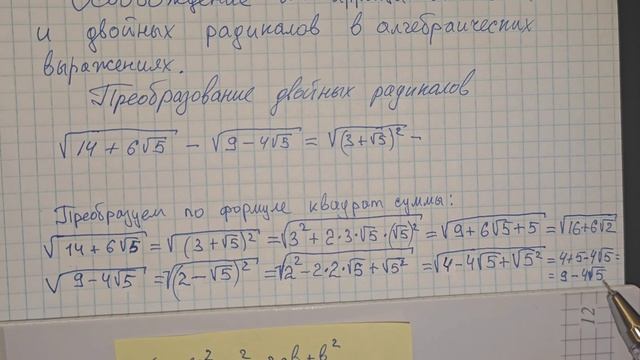 и двойных радикалов в алгебраических
выражениях.
Преобразование двойных радикалов
√(14 + 6√5) - √(9 - 4√5) = √((3 + √5)²) -
Преобразуем по формуле квадрат суммы:
√(14 + 6√5) = √((3 + √5)²) = √(3² + 2·3·√5·(√5)²) = √(9 + 6√5 + 5) = √(16 + 6√2)
√(9 - 4√5) = √((2 - √5)²) = √(2² - 2·2·√5 + √5²) = √(4 - 4√5 + √5²) = 4 + 5 - 4√5 =
= 9 - 4√5
12